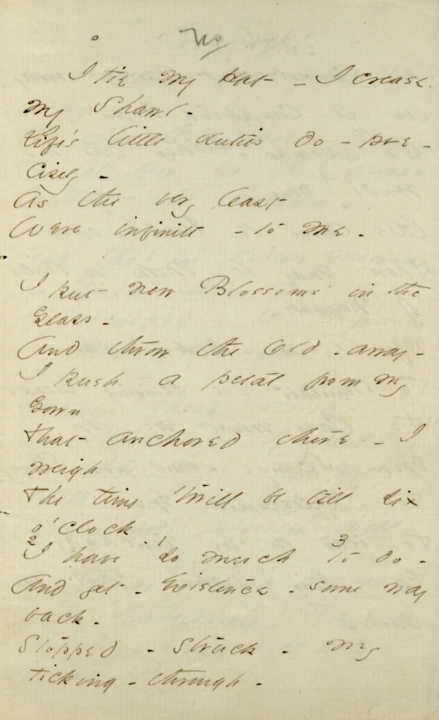 No
I tie my Hat – I crease
my Shawl –
Life's little duties do – pre –
cisely –
As the very least
Were infinite – to me –
I put new Blossoms in the
Glass –
And throw the Old – away –
I push a petal from my
Gown
That anchored there – I
weigh
The time 'twill be till six
o'clock
2 1 3
I have so much to do –
And yet – Existence – some way
back –
Stopped – struck – my
ticking – through –